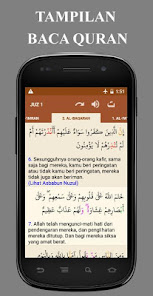 TAMPILAN
BACA QURAN
1:51
JUZ 1
2. AL BAQARAH
إِنَّ الَّذِينَ كَفَرُوا سَوَاءٌ عَلَيْهِمْ أَأَنْذَرْتَهُمْ أَمْ
لَمْ تُنْذِرْهُمْ لَا يُؤْمِنُونَ
6. Sesungguhnya orang-orang kafir, sama
saja bagi mereka, kamu beri peringatan
atau tidak kamu beri peringatan, mereka
tidak juga akan beriman.
(Lihat Asbabun Nuzul)
خَتَمَ اللَّهُ عَلَىٰ قُلُوبِهِمْ وَعَلَىٰ سَمْعِهِمْ وَعَلَىٰ
أَبْصَارِهِمْ غِشَاوَةٌ وَلَهُمْ عَذَابٌ عَظِيمٌ
7. Allah telah mengunci-mati hati dan
pendengaran mereka, dan penglihatan
mereka ditutup. Dan bagi mereka siksa
yang amat berat.